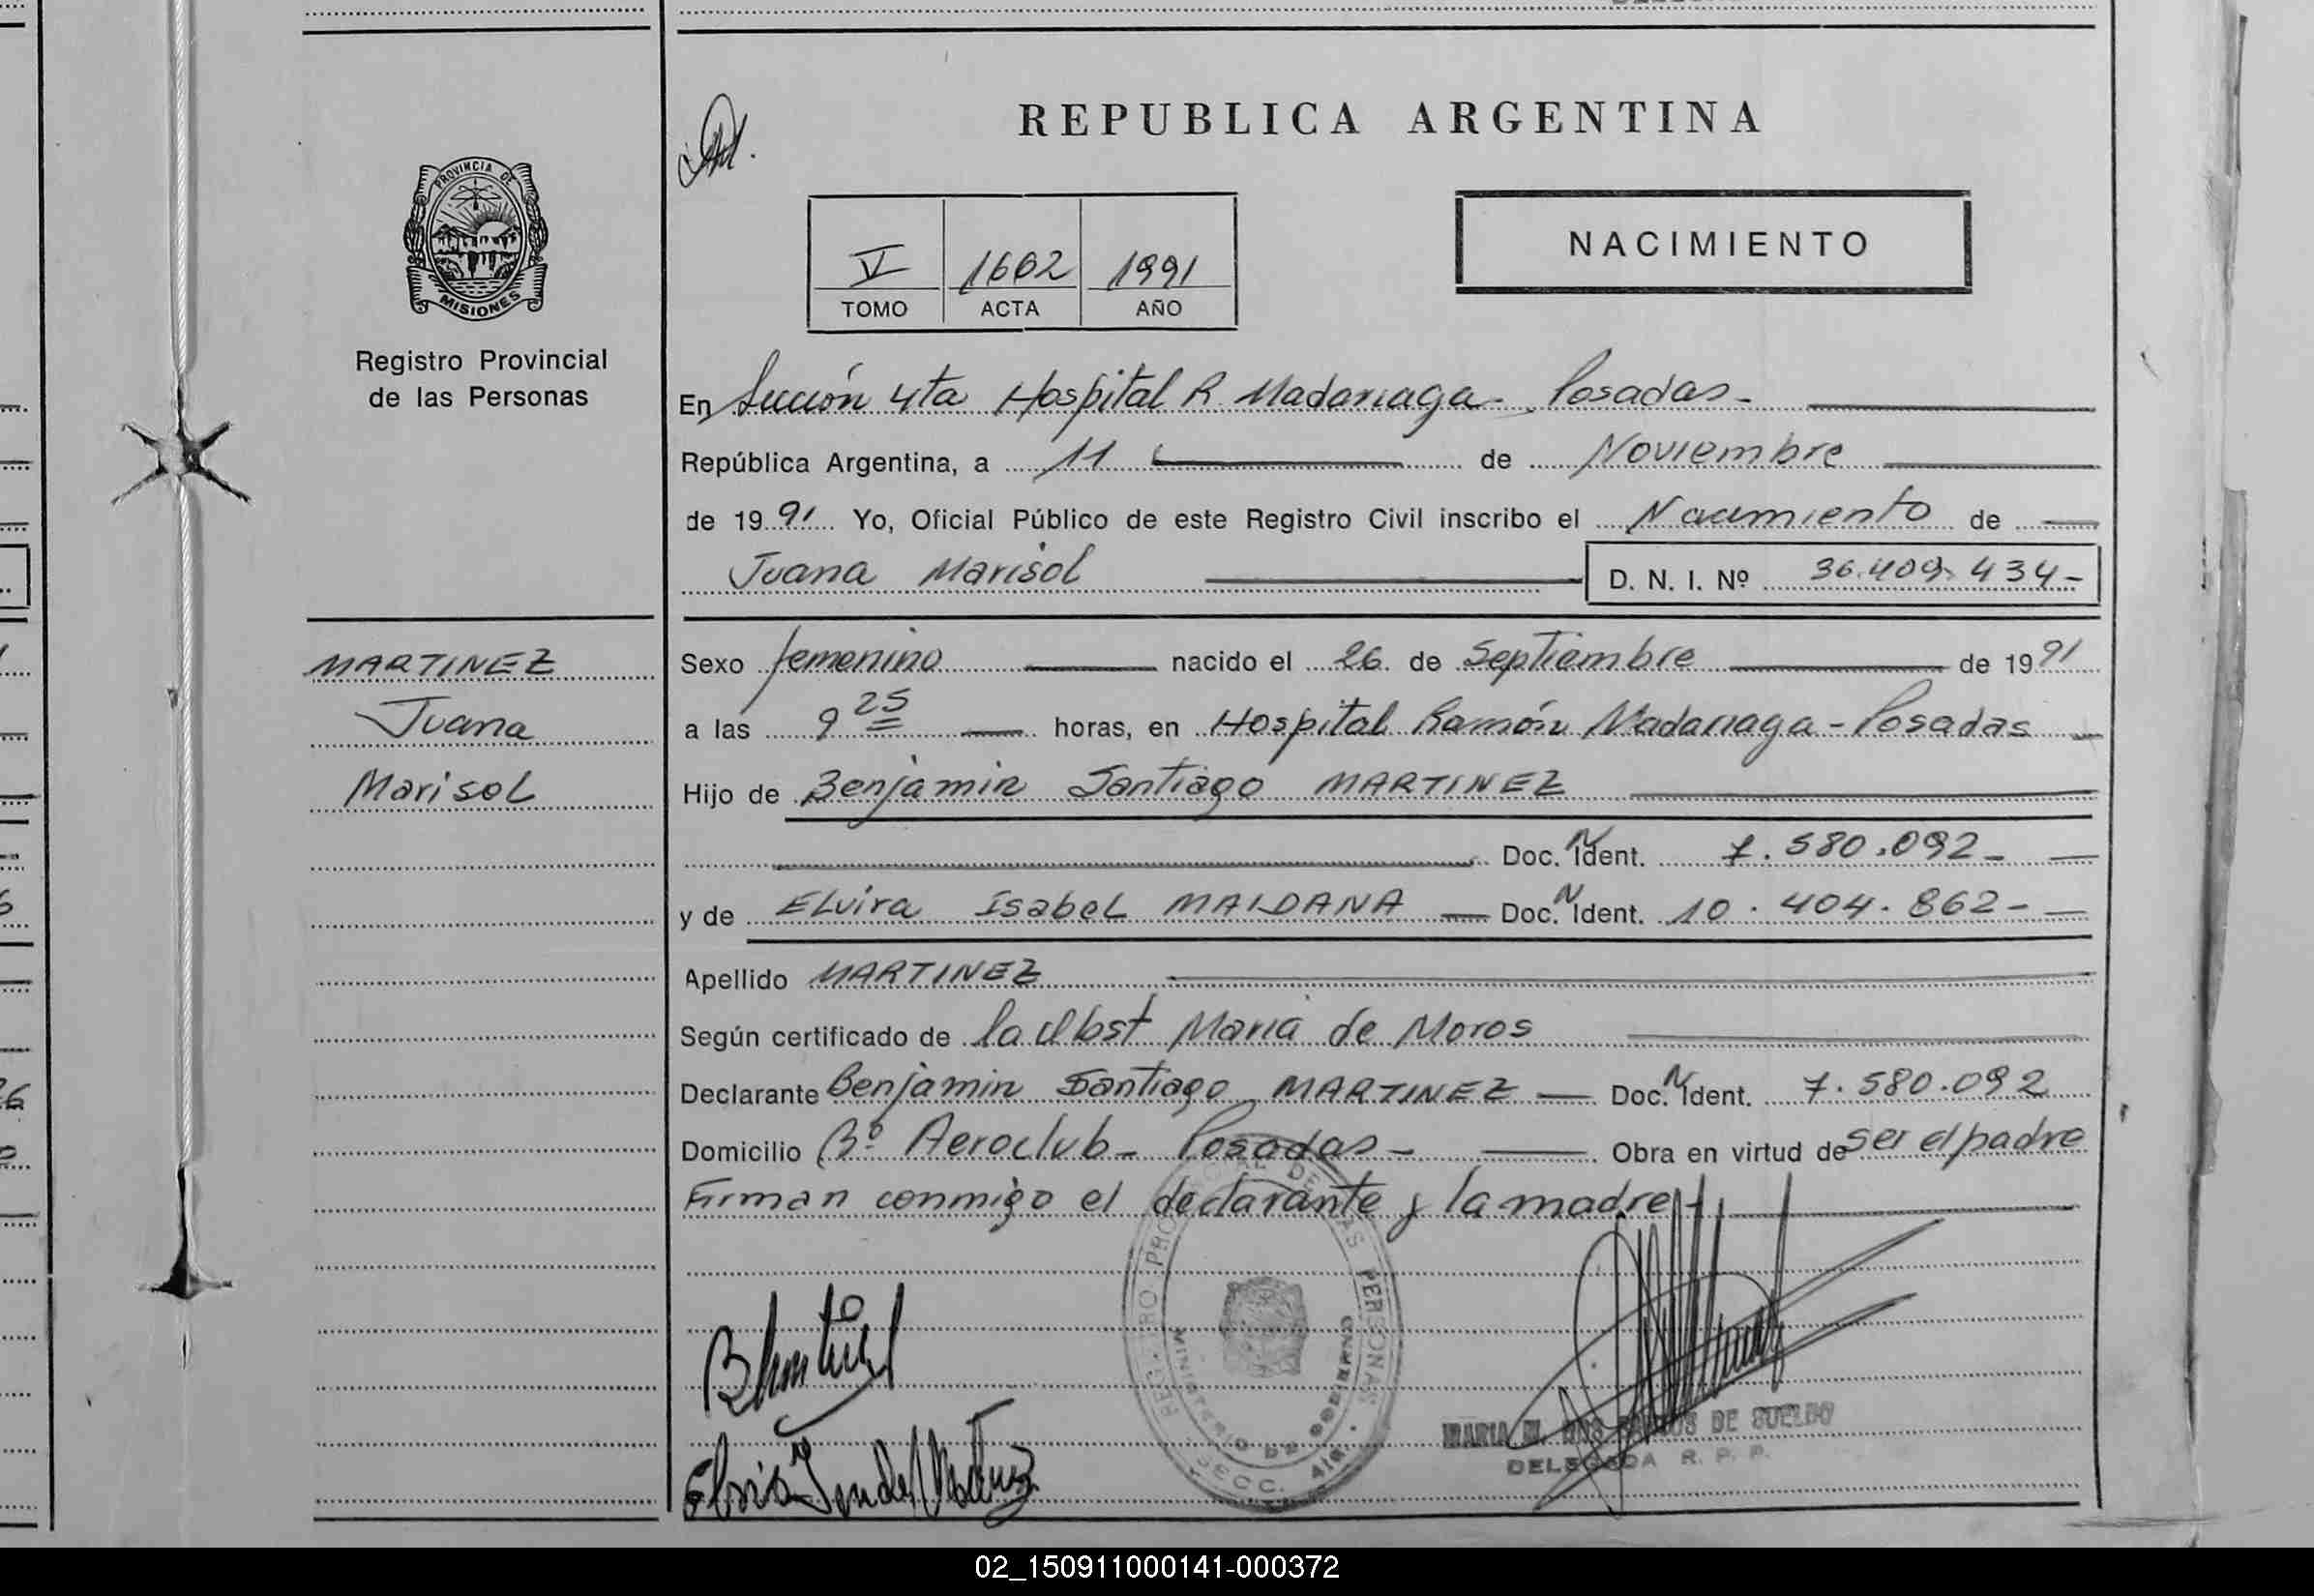 REPUBLICA ARGENTINA
PROVINCIA DE
MISIONES
Registro Provincial
de las Personas
V 1662 1991
TOMO ACTA AÑO
NACIMIENTO
En Sección 4ta Hospital R. Madariaga - Posadas -
República Argentina, a 11 de Noviembre
de 1991 Yo, Oficial Público de este Registro Civil inscribo el Nacimiento de
Juana Marisol D. N. I. Nº 36.409.434-
MARTINEZ
Juana
Marisol
Sexo femenino nacido el 26 de Septiembre de 1991
a las 9 25 horas, en Hospital Ramón Madariaga - Posadas
Hijo de Benjamin Santiago MARTINEZ
Doc. N Ident. 7.580.092-
y de Elvira Isabel MAIDANA Doc. N Ident. 10.404.862-
Apellido MARTINEZ
Según certificado de la Obst Maria de Moros
Declarante Benjamin Santiago MARTINEZ Doc. N Ident. 7.580.092
Domicilio Bº Aeroclub - Posadas - Obra en virtud de ser el padre
Firman conmigo el declarante y la madre -
REGISTRO PROVINCIAL DE LAS PERSONAS
MINISTERIO DE GOBIERNO
SECC. 4ta.
MARIA M. DOS SANTOS DE SUELDO
DELEGADA R. P. P.
02_150911000141-000372